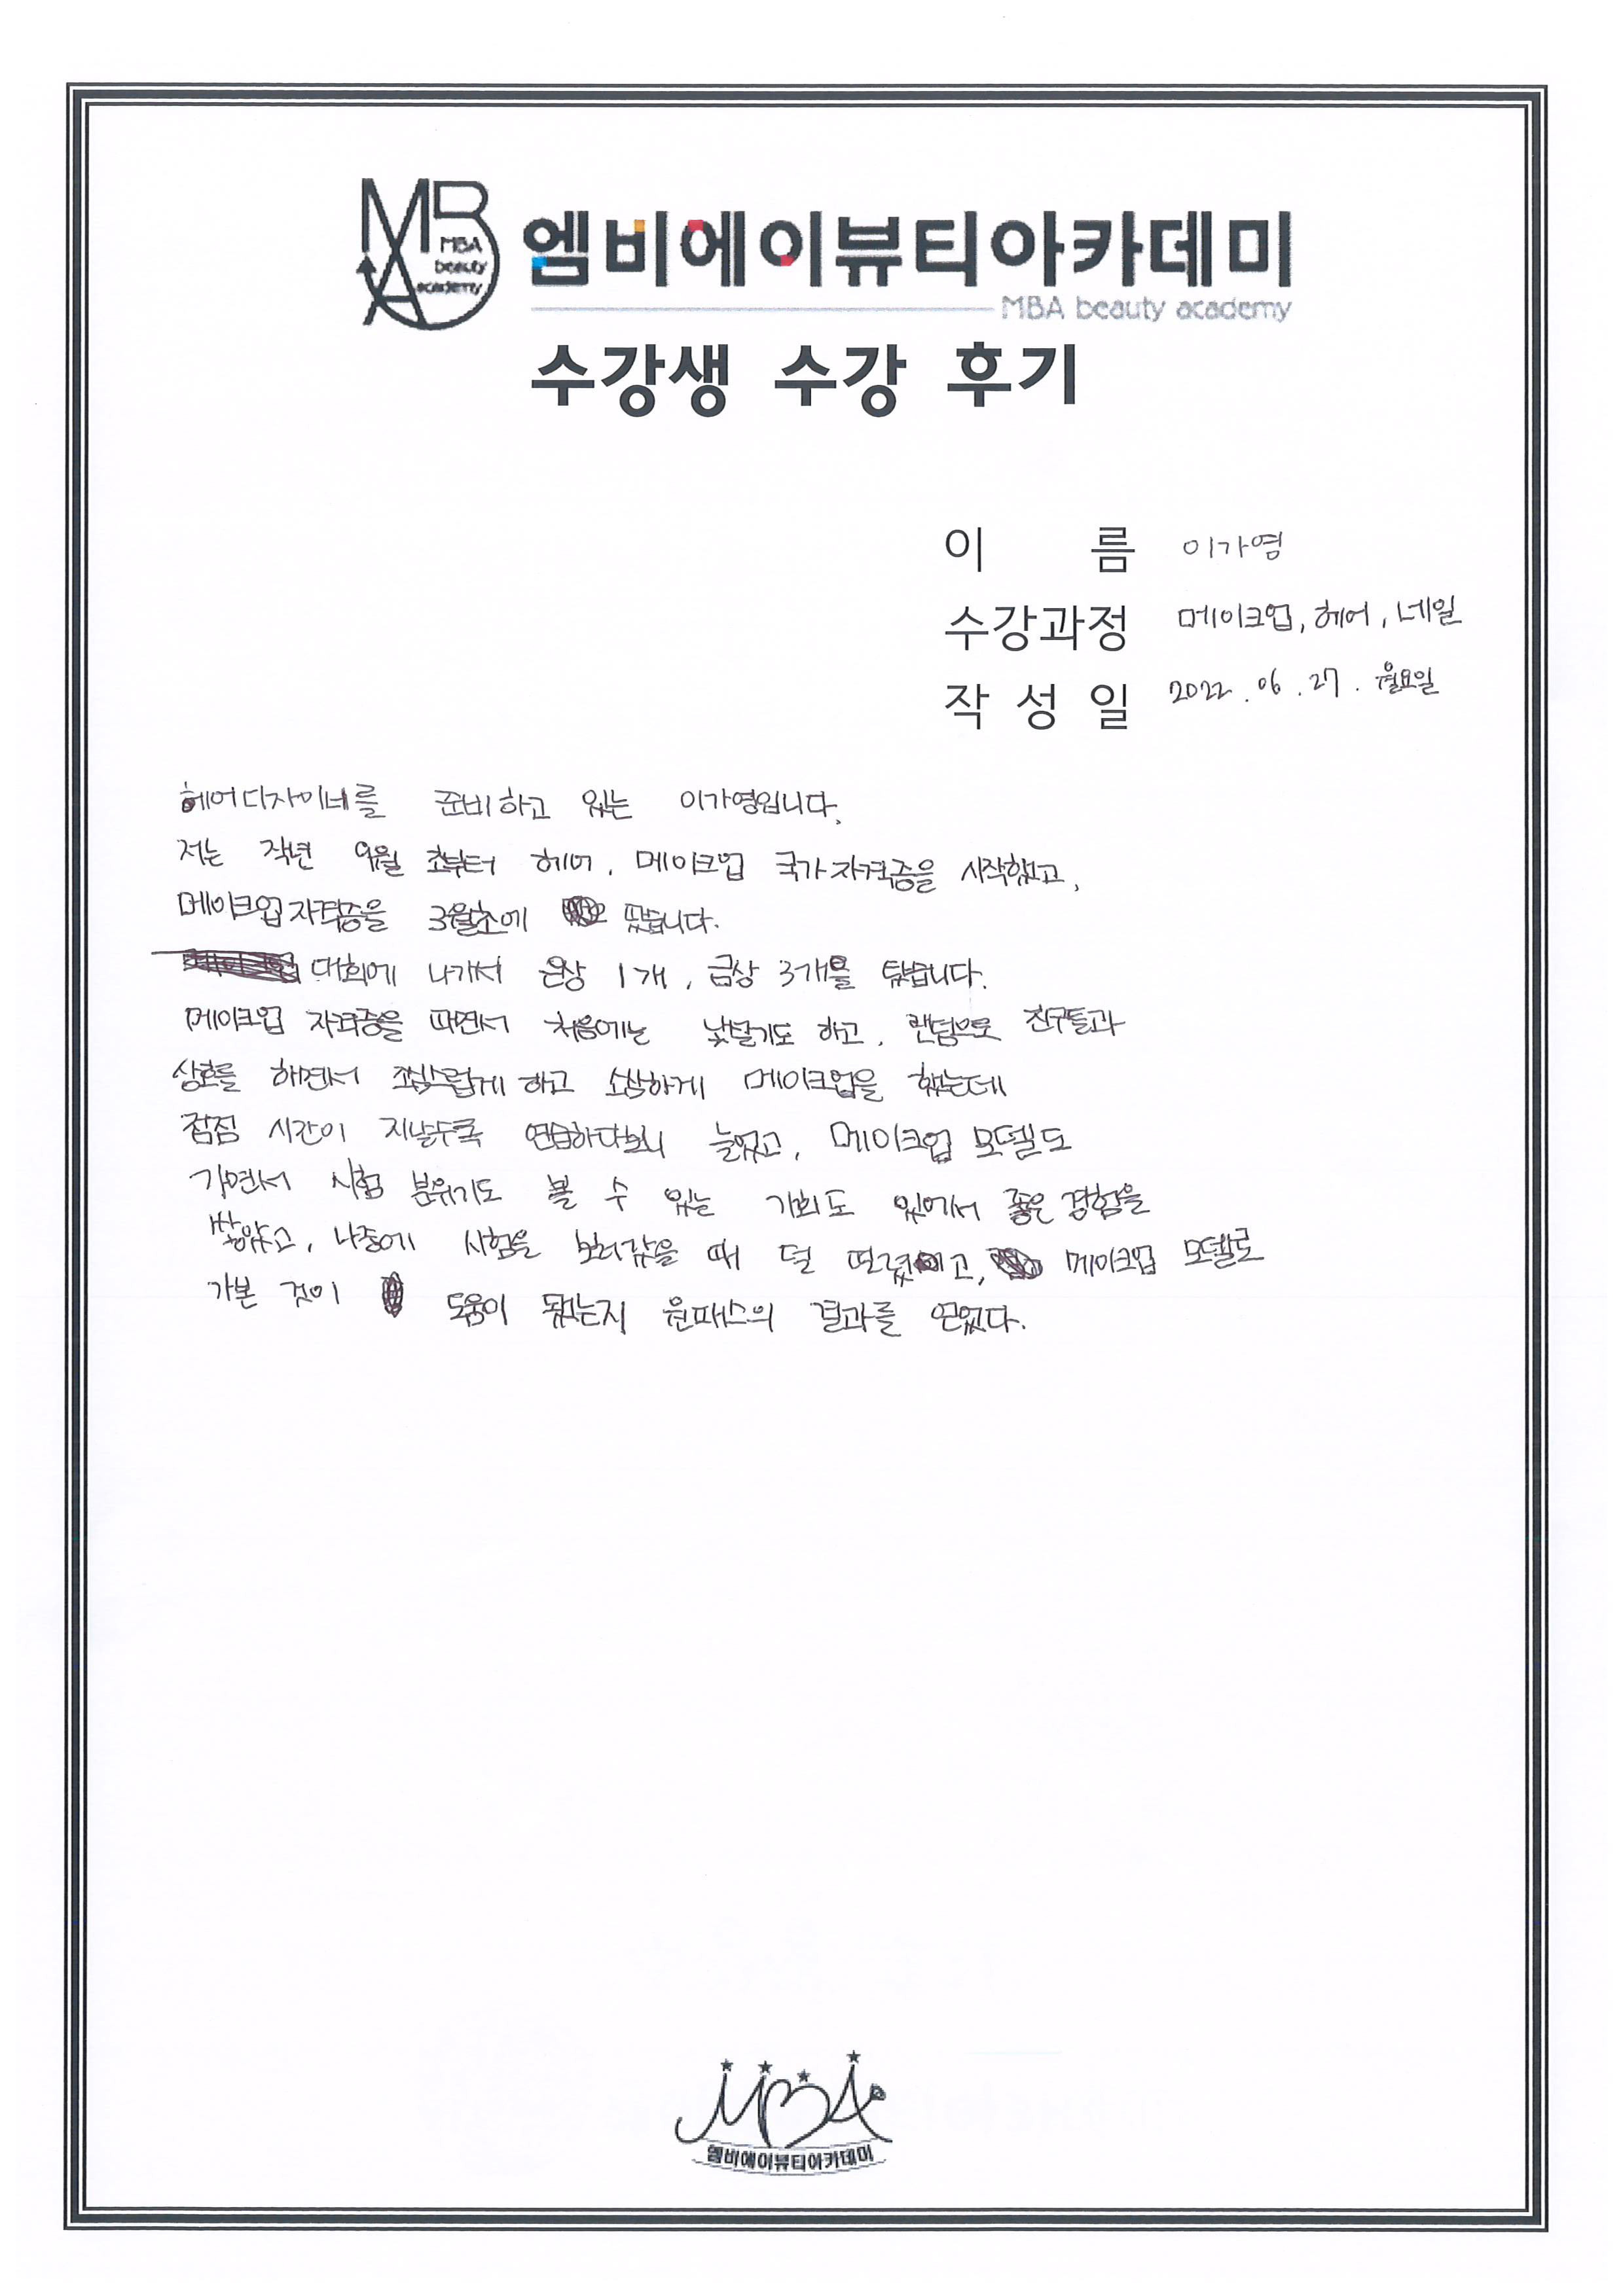 MBA beauty academy
엠비에이뷰티아카데미
MBA beauty academy
수강생 수강 후기
이 름 이가영
수강과정 메이크업, 헤어, 네일
작 성 일 2022. 06. 27. 월요일
헤어디자이너를 준비하고 있는 이가영입니다.
저는 작년 9월 초부터 헤어, 메이크업 국가자격증을 시작했고,
메이크업 자격증을 3월초에 땄습니다.
대회에 나가서 은상 1개, 금상 3개를 탔습니다.
메이크업 자격증을 따면서 처음에는 낯설기도 하고, 랜덤으로 친구들과
상호를 해면서 조심스럽게 하고 소심하게 메이크업을 했는데
점점 시간이 지날수록 연습하다보니 늘었고, 메이크업 모델도
가면서 시험 분위기도 볼 수 있는 기회도 있어서 좋은 경험을
쌓았고, 나중에 시험을 보러갔을 때 덜 떨렸고, 메이크업 모델로
가본 것이 도움이 됐는지 원패스의 결과를 얻었다.
MBA
엠비에이뷰티아카데미